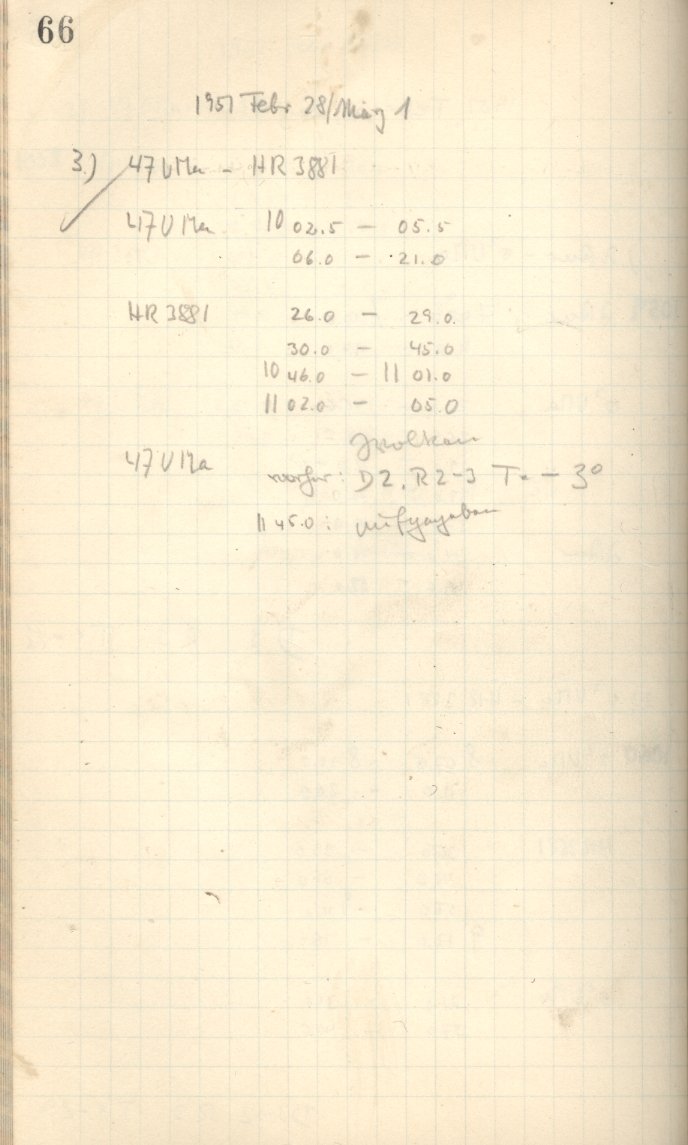 66
1951 Febr 28/März 1
3.) 47 UMa - HR 3881
47 UMa 10 02.5 - 05.5
06.0 - 21.0
HR 3881 26.0 - 29.0
30.0 - 45.0
10 46.0 - 11 01.0
11 02.0 - 05.0
Wolken
47 UMa vorher: D2, R2-3 T. - 3°
11 45.0: aufgegeben